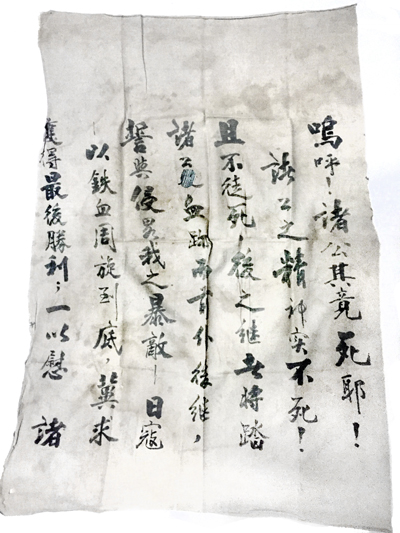 嗚呼！諸公其竟死耶！
諸公之精神实不死！
且不徒死！後之继者将踏
諸公之血跡而首仆後继，
誓與侵畧我之暴敵—日寇
以鉄血周旋到底，冀求
獲得最後勝利；一以慰諸